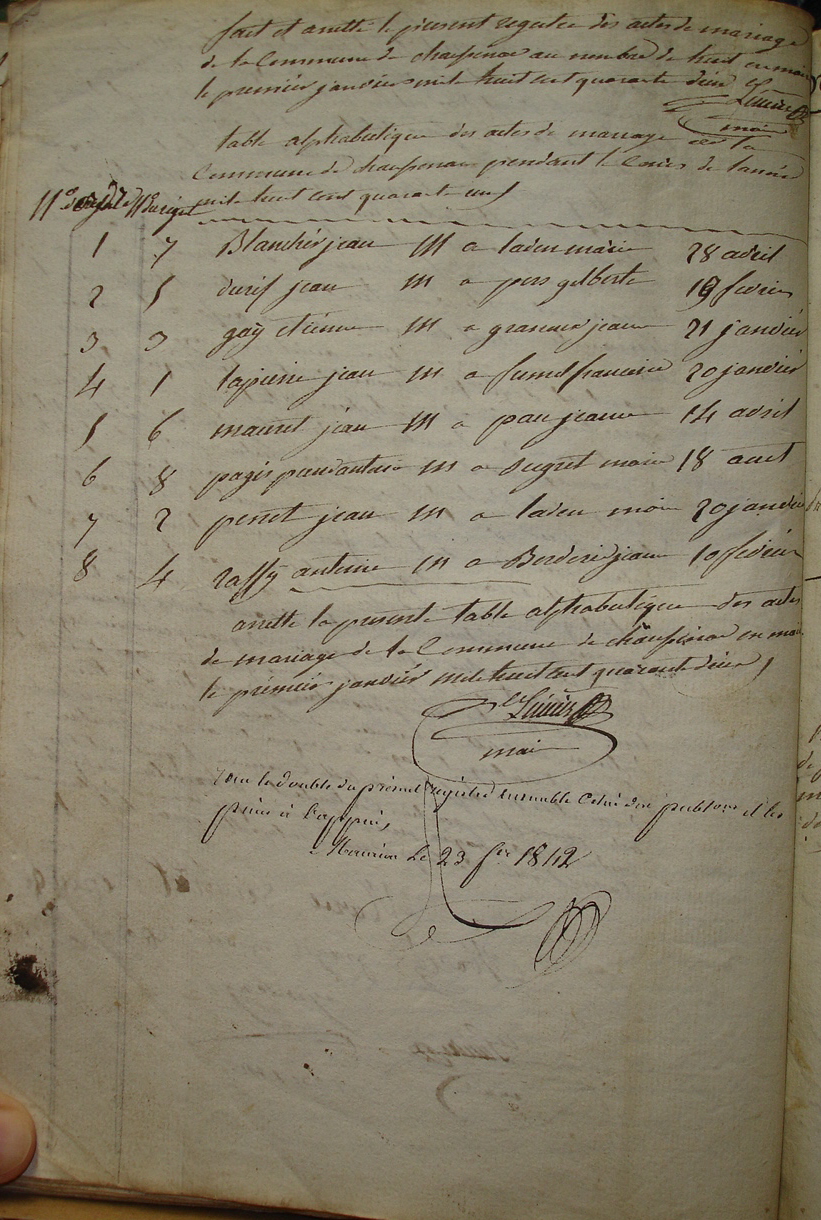 fait et arretté le present registre des actes de mariage
de la Commune de chaussenac au nombre de huit en mairie
le premier janvier mil huit cent quarante deux
maire
table alphabetique des actes de mariage de la
Commune de chaussenac pendant le Cours de l'année
mil huit cent quarante un
1 7 Blanchet jean m a marie 28 avril
2 5 durif jean m a gilberte 19 fevrier
3 3 gay etienne m a jeanne 21 janvier
4 1 lapierre jean m a francoise 20 janvier
5 6 jean m a jeanne 14 avril
6 8 pagis m a marie 18 aout
7 2 jean m a marie 20 janvier
8 4 raffy antoine m a jeanne 10 fevrier
arretté la presente table alphabetique des actes
de mariage de la Commune de chaussenac en mairie
le premier janvier mil huit cent quarante deux
maire
le double du présent registre ensemble Celui des et les
pièces à l'appui,
Mauriac Le 23 1842